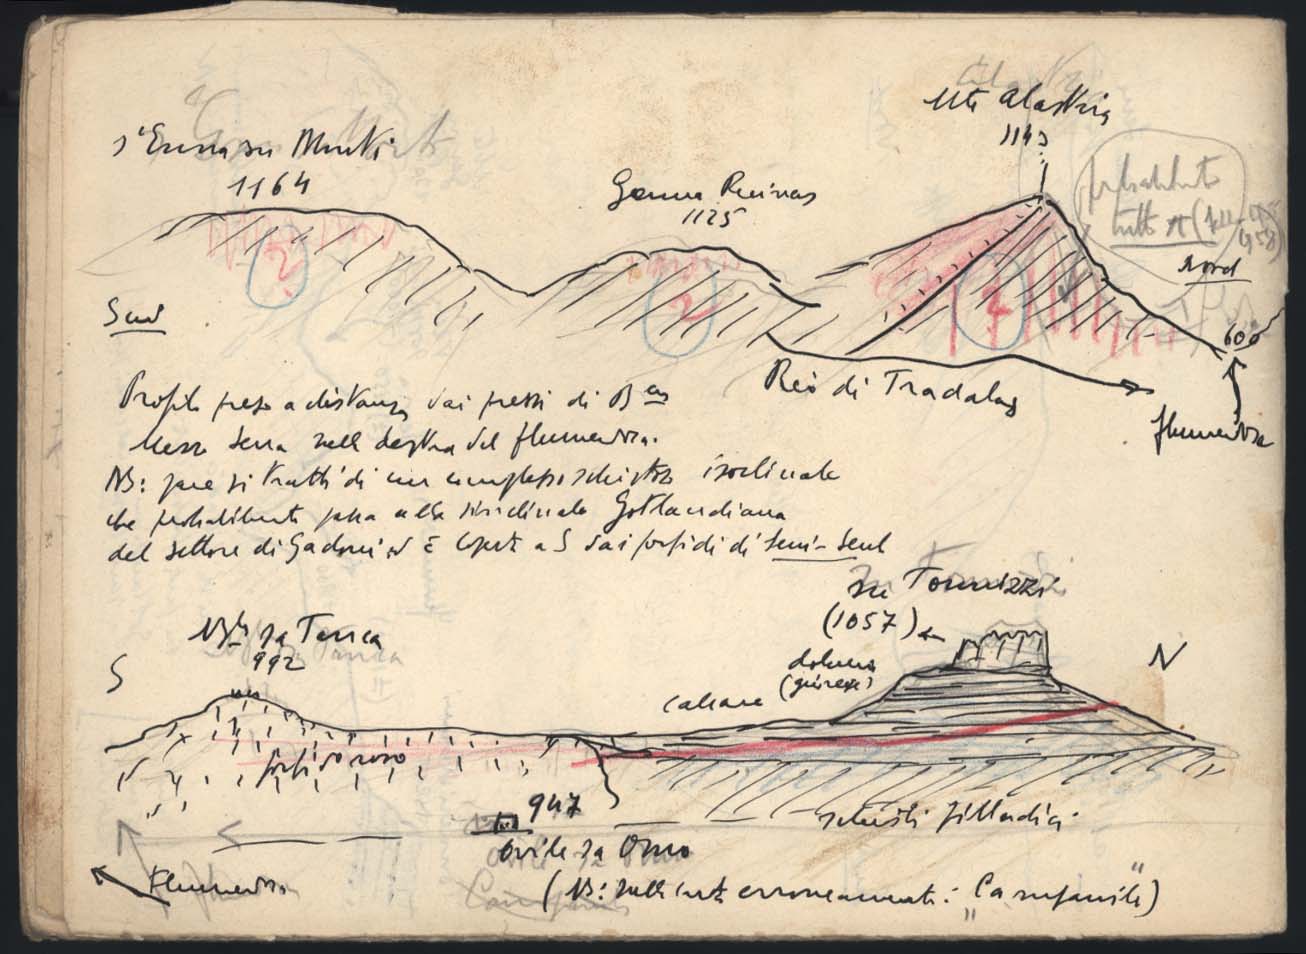 s'Enna su Monti
1164
Genna Ruinas
1125
Mte Alastria
1143
probabilmte
tutto
Nord
Sud
2
2
4
600
Rio di Tradalas
flumendosa
Profilo preso a distanza dai pressi di Bcu
Serra sulla destra del flumendosa.
NB: pare si tratti di un complesso schistoso isoclinale
che probabilmente passa alla sinclinale Gotlandiana
del settore di Gadoni ed è coperto a S dai porfidi di Seui-Seul
su Tonnizzi
(1057)
sa Tanca
992
S
N
dolomia
(giurese)
calcare
porfido roso
947
schisti filladici
ovile sa Omo
Flumendosa
(NB: sulla carta erroneamente: "Campanile")